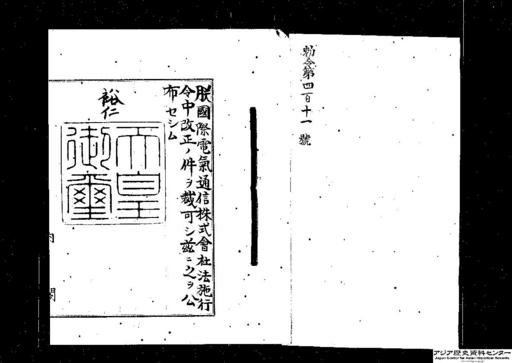 勅令第四百十一號
朕國際電氣通信株式會社法施行
令中改正ノ件ヲ裁可シ茲ニ之ヲ公
布セシム
裕仁
天皇
御璽
内
閣
アジア歴史資料センター
Japan Center for Asian Historical Records